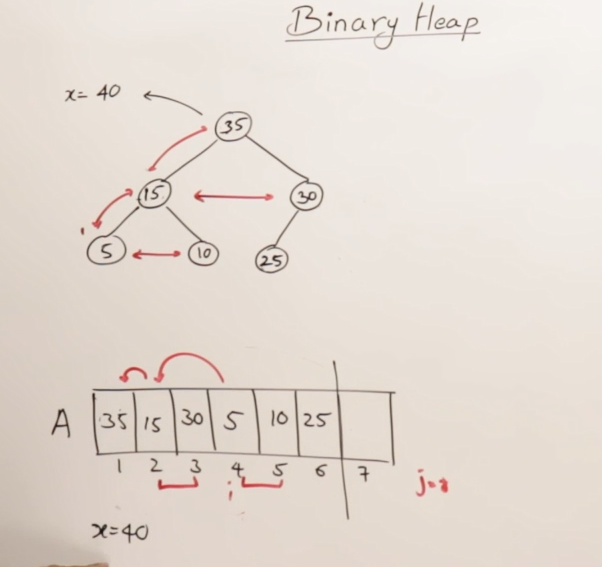 Binary Heap
x= 40
35
15
30
5
10
25
A
35 15 30 5 10 25
1 2 3 4 5 6 7
i
x=40